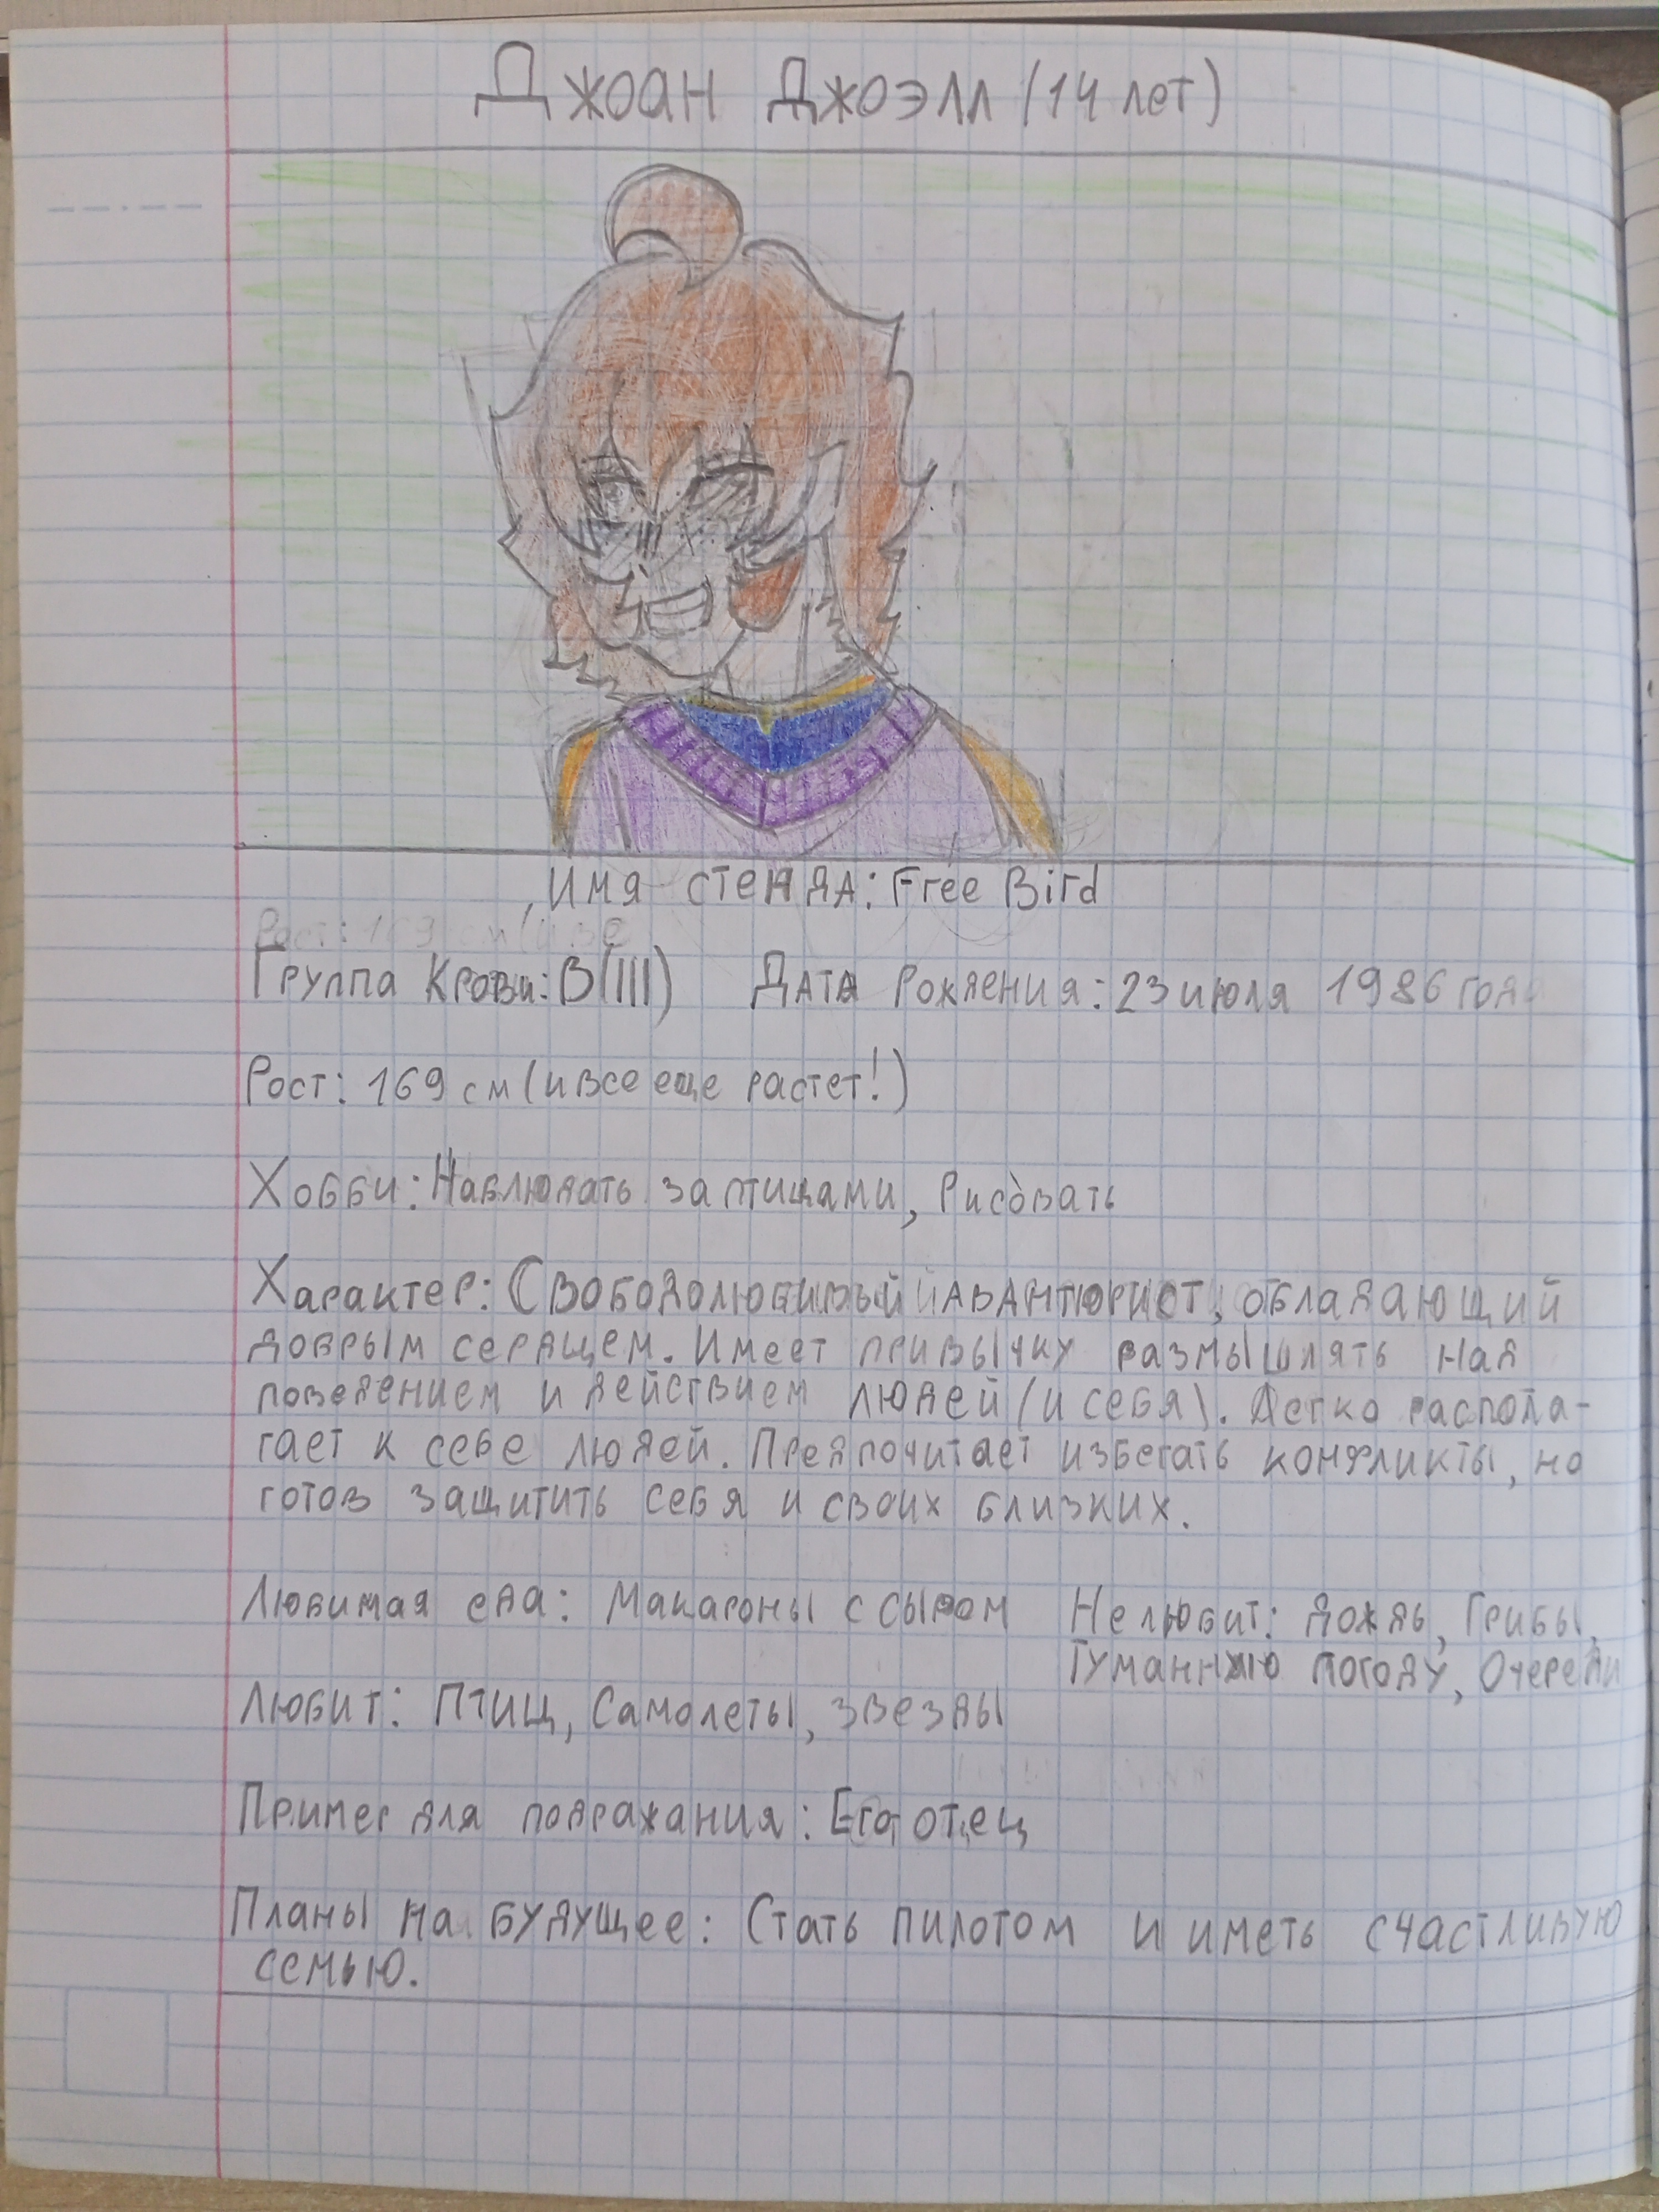 Джоан Джоэлл (14 лет)
Имя стенда: Free Bird
Группа Крови: B(III) Дата рождения: 23 июля 1986 года
Рост: 169 см (и все еще растет!)
Хобби: Наблюдать за птицами, Рисовать
Характер: Свободолюбивый авантюрист, обладающий
добрым сердцем. Имеет привычку размышлять над
поведением и действием людей (и себя). Легко распола-
гает к себе людей. Предпочитает избегать конфликты, но
готов защитить себя и своих близких.
Любимая еда: Макароны с сыром Не любит: дождь, Грибы,
Туманную погоду, Очереди
Любит: Птиц, Самолеты, звезды
Пример для подражания: Его отец
Планы на будущее: Стать пилотом и иметь счастливую
семью.